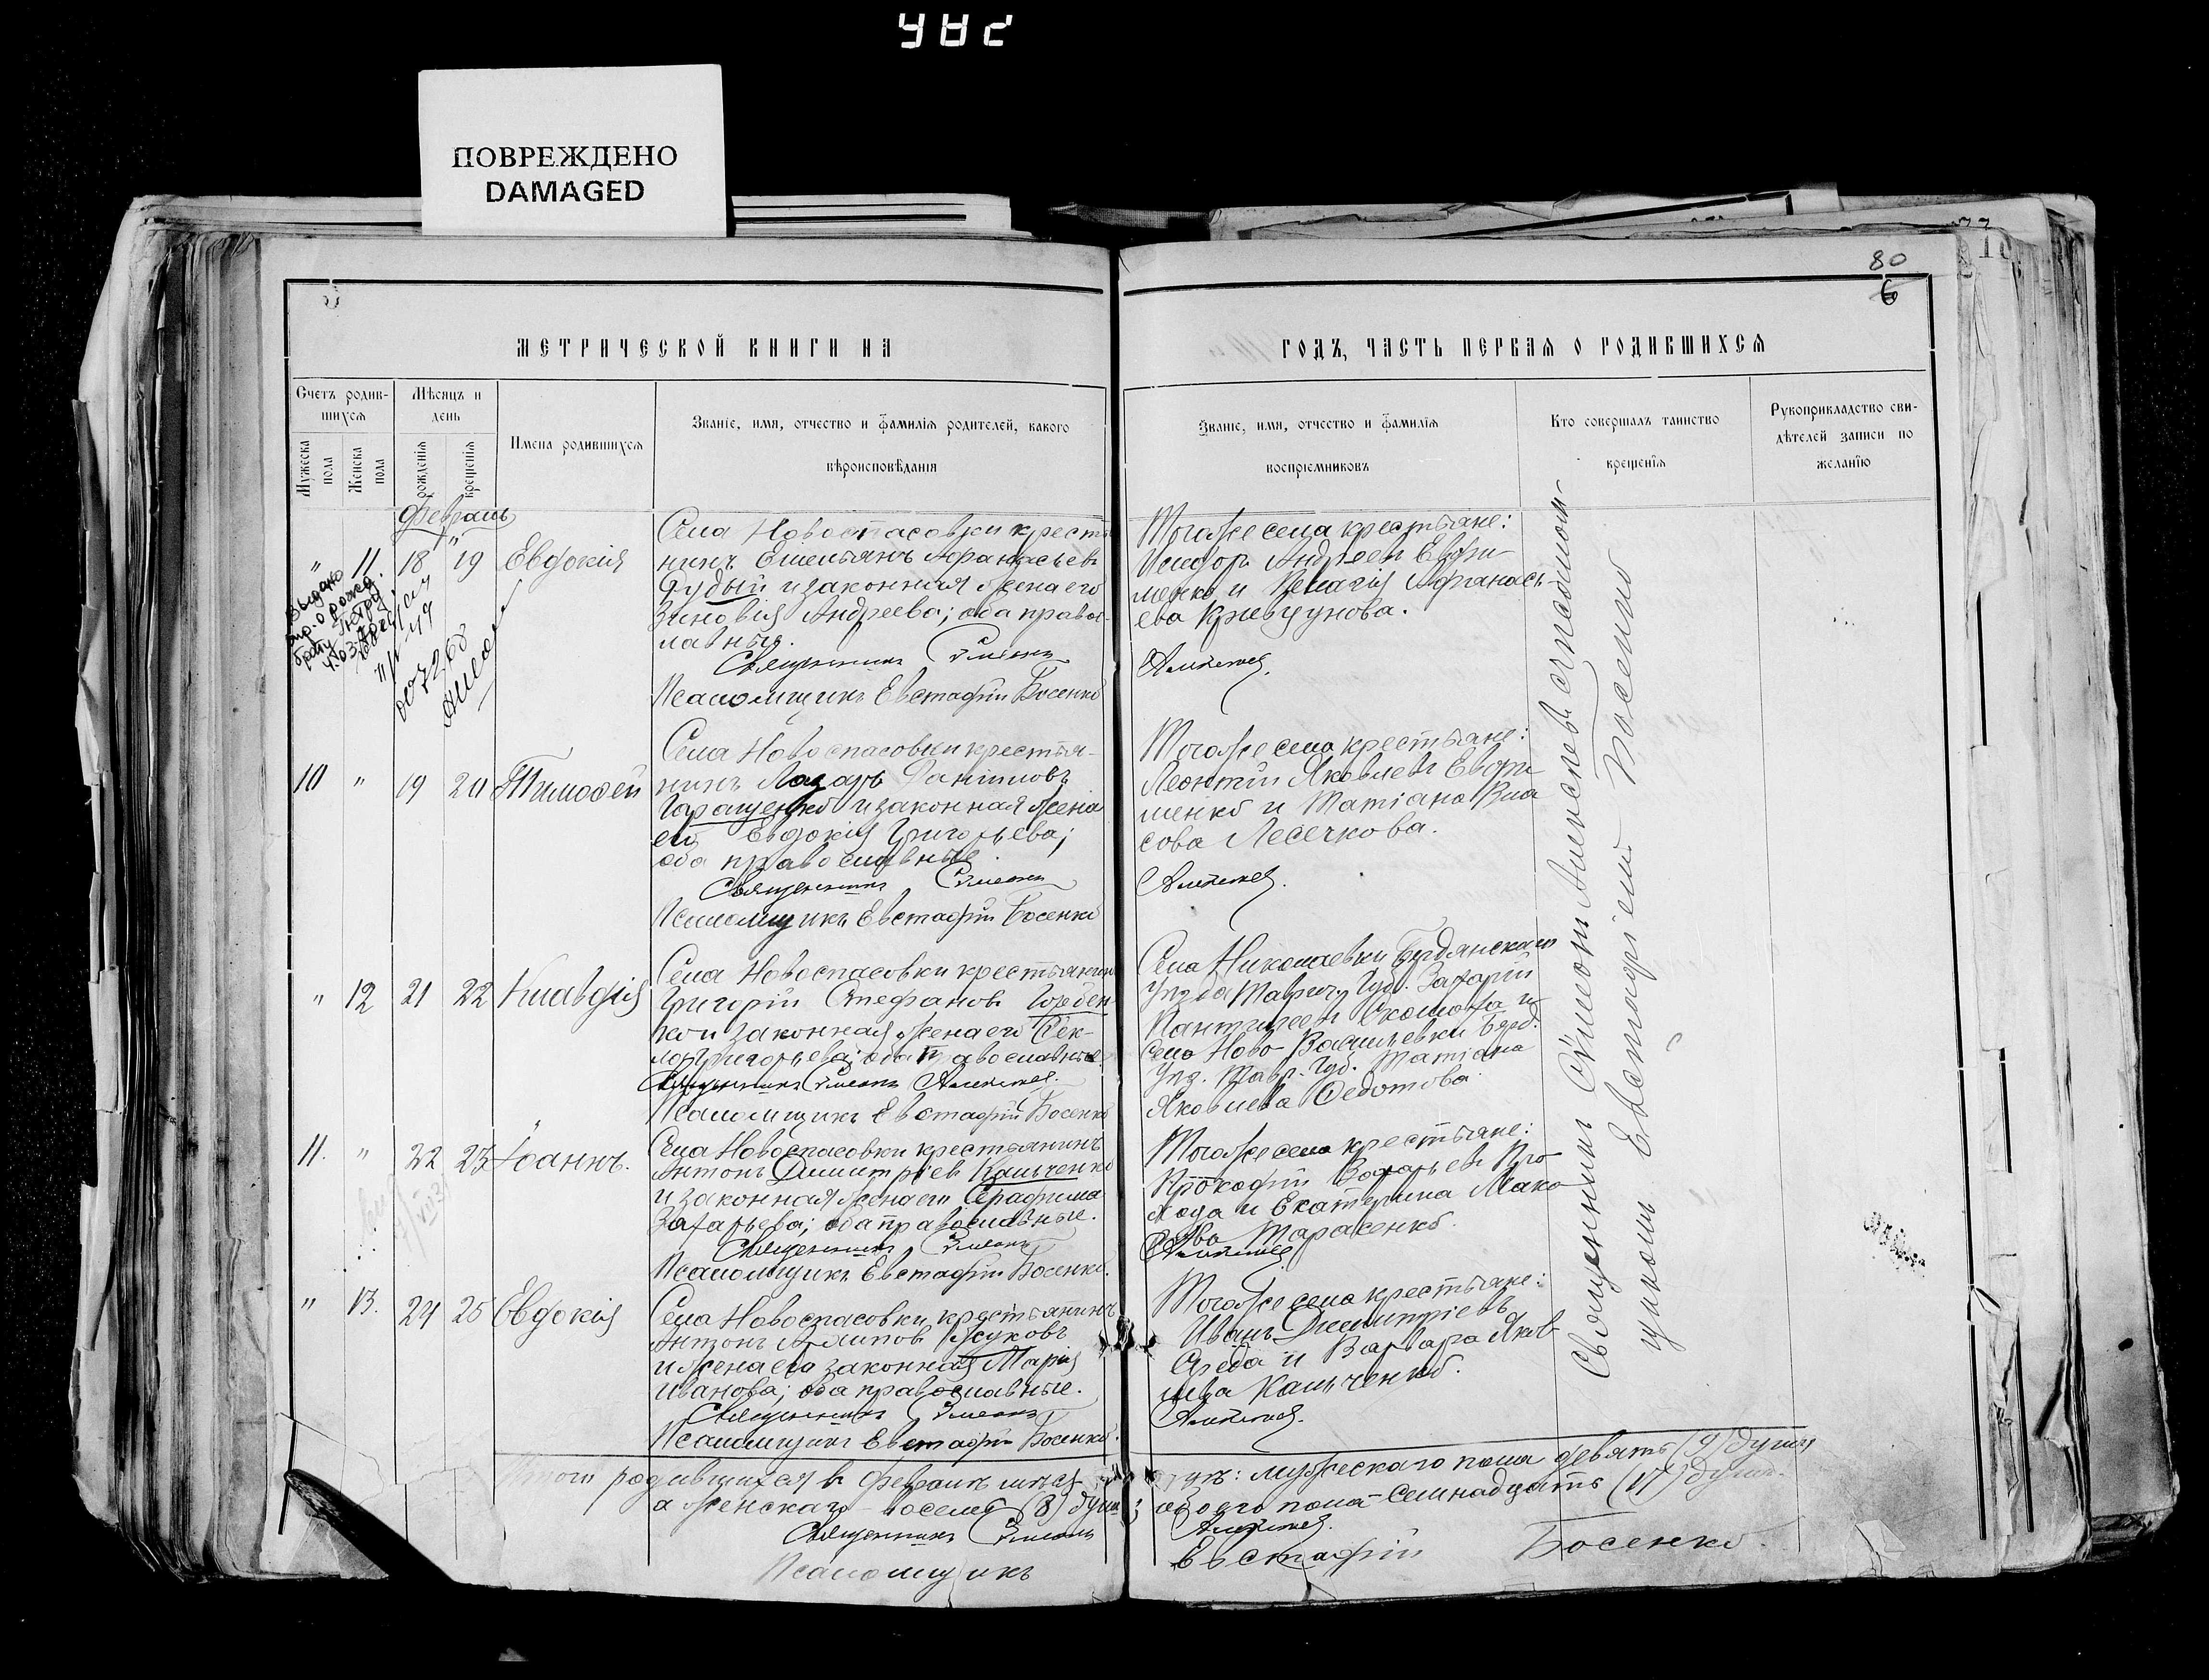 ПОВРЕЖДЕНО
DAMAGED
80
6
МЕТРИЧЕСКОЙ КНИГИ НА
ГОДЪ, ЧАСТЬ ПЕРВАЯ О РОДИВШИХСЯ
Счетъ родив-
шихся
Мужеска
пола
Женска
пола
Мѣсяцъ и
день
рожденія
крещенія
Имена родившихся
Званіе, имя, отчество и фамилія родителей, какого
вѣроисповѣданія
Званіе, имя, отчество и фамилія
воспріемниковъ
Кто совершалъ таинство
крещенія
Рукоприкладство сви-
дѣтелей записи по
желанію
Февраль
" 11 18 19 Евдокія
Выдано
о рожд.
брату Петру
Села Новоспасовки кресть
нинъ Емельянъ Афанасьевъ
Дудый и законная жена его
Зиновія Андреева; оба правос-
лавные.
Священникъ Симеонъ
Псаломщикъ Евстафій Босенко
Тогоже села крестьяне:
Исидоръ Андреевъ Евфи-
менко и Пелагія Афанась-
ева Кривцунова.
Алексѣев.
10 " 19 20 Тимофей
Села Новоспасовки крестья-
нинъ Лазарь Даніиловъ
Гаращенко и законная жена
его Евдокія Григорьева;
оба православные.
Священникъ Симеонъ
Псаломщикъ Евстафій Босенко
Тогоже села крестьяне:
Леонтій Яковлевъ Евфи-
менко и Татіана Вла
сова Лесечкова.
Алексѣев.
" 12 21 22 Клавдія
Села Новоспасовки крестьянинъ
Григорій Стефановъ Гребен-
ко и законная жена его Ѳек-
ла Григорьева; оба православные.
Священникъ Симеонъ Алексѣев.
Псаломщикъ Евстафій Босенко
Села Николаевки Бердянскаго
Уѣзда Таврич. Губ. Захарій
Пантилеев и
Села Ново-Васильевки Берд.
Уѣз. Тавр. Губ. Татіана
Яковлева Ѳедотова.
11. " 22 23 Іоаннъ.
Села Новоспасовки крестьянинъ
Антонъ Димитріев Кальченко
и законная жена его Серафима
Захарьева; оба православные.
Священникъ Симеонъ
Псаломщикъ Евстафій Босенко.
Тогоже села крестьяне:
Прокофій Захарьев Про
хода и Екатерина Мака
рова Тарасенко.
Алексѣев
" 13. 24 25 Евдокія
Села Новоспасовки крестьянинъ
Антонъ Архипов Жуковъ
и жена его законная Марія
Иванова; оба православные.
Священникъ Симеонъ
Псаломщикъ Евстафій Босенко.
Тогоже села крестьяне:
Иванъ Димитріевъ
Среда и Варвара Яков
лева Кальченко.
Алексѣев.
Священникъ Симеонъ Алексѣевъ съ псалом-
щикомъ Евстафіемъ Босенко
Итого родившихся въ Февралѣ мѣся
цѣ: мужескаго пола девять (9) душъ,
а женскаго – восемь (8) душъ;
обоего пола – семнадцать (17) душъ.
Священникъ Симеонъ Алексѣев.
Псаломщикъ Евстафій Босенко.